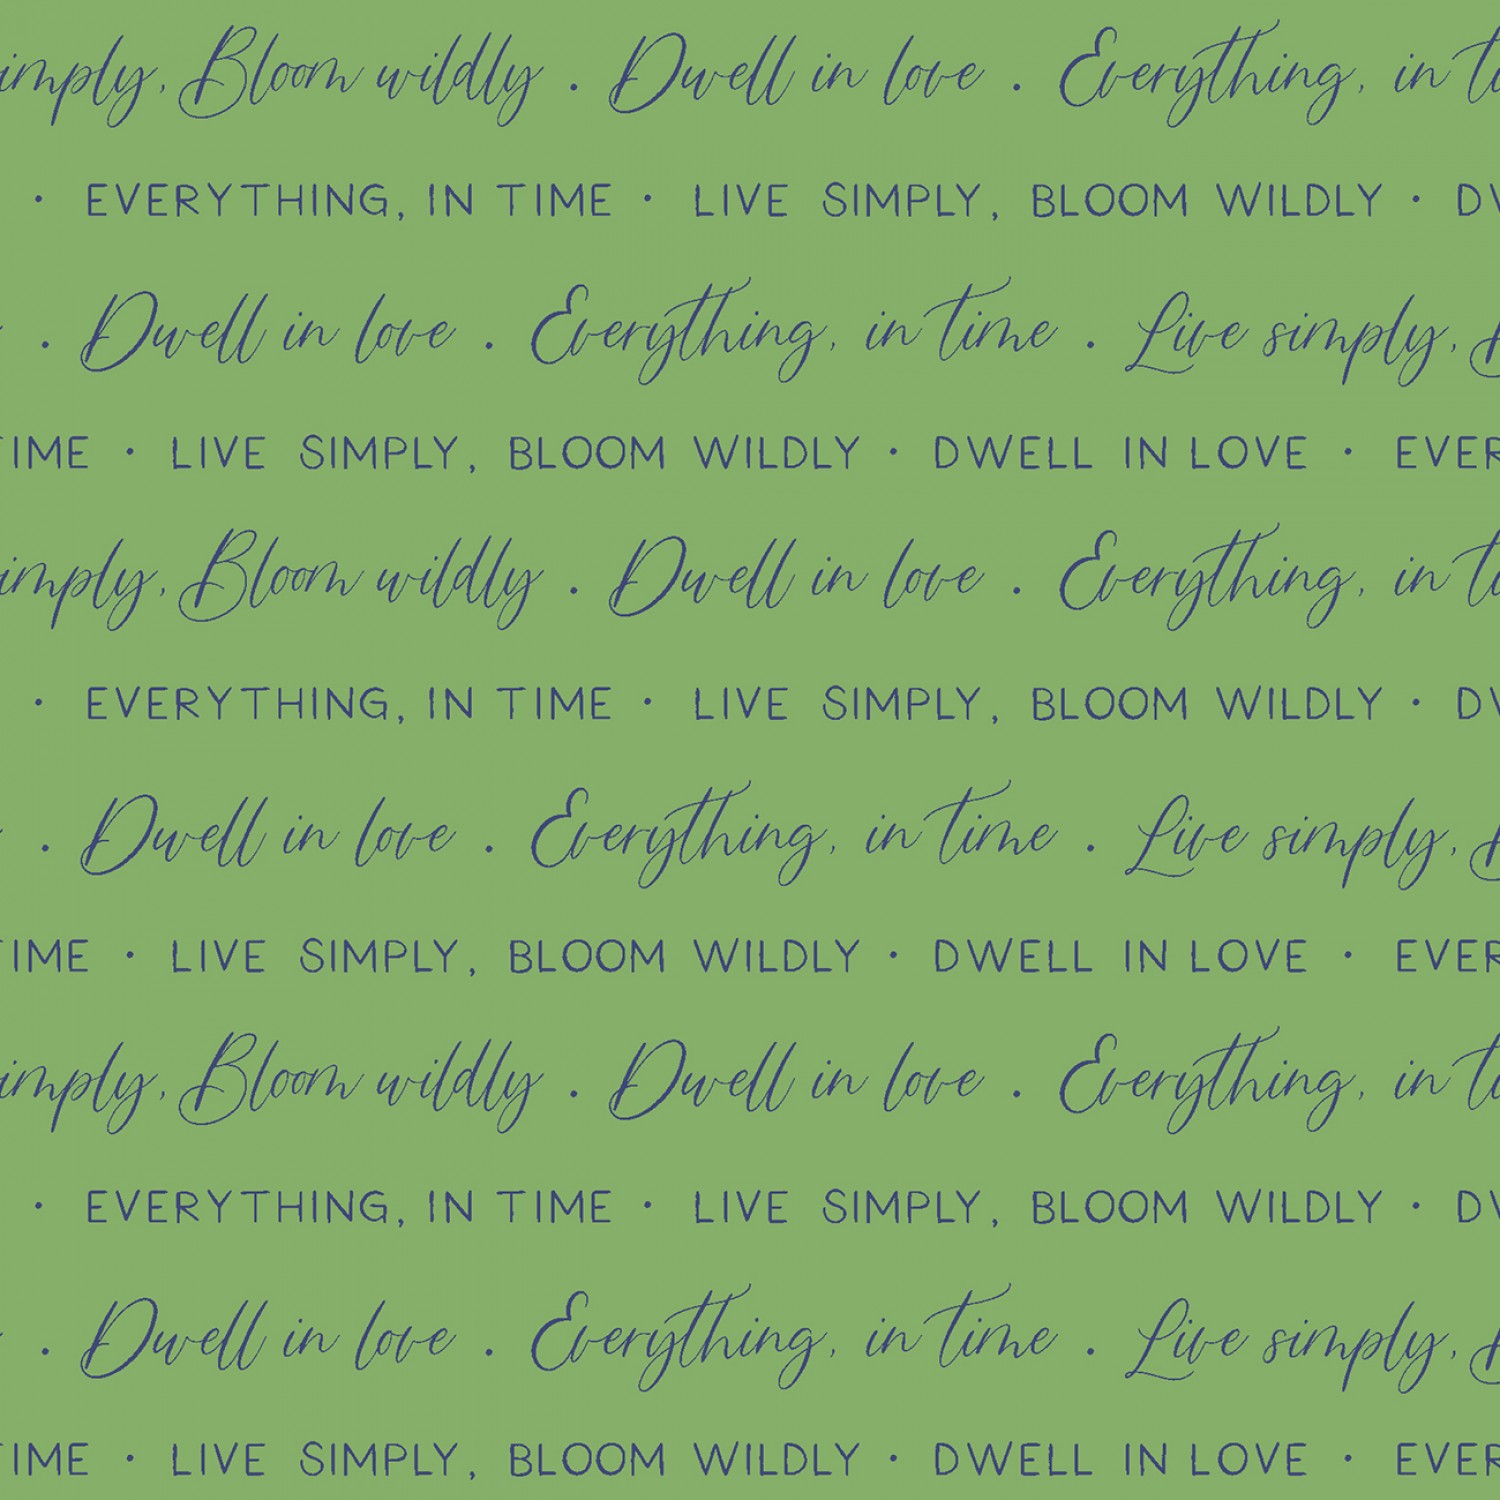 imply, Bloom wildly . Dwell in love . Everything, in ti
· EVERYTHING, IN TIME · LIVE SIMPLY, BLOOM WILDLY · DW
. Dwell in love . Everything, in time . Live simply, B
TIME · LIVE SIMPLY, BLOOM WILDLY · DWELL IN LOVE · EVER
imply, Bloom wildly . Dwell in love . Everything, in ti
· EVERYTHING, IN TIME · LIVE SIMPLY, BLOOM WILDLY · DW
. Dwell in love . Everything, in time . Live simply, B
TIME · LIVE SIMPLY, BLOOM WILDLY · DWELL IN LOVE · EVER
imply, Bloom wildly . Dwell in love . Everything, in ti
· EVERYTHING, IN TIME · LIVE SIMPLY, BLOOM WILDLY · DW
. Dwell in love . Everything, in time . Live simply, B
TIME · LIVE SIMPLY, BLOOM WILDLY · DWELL IN LOVE · EVER